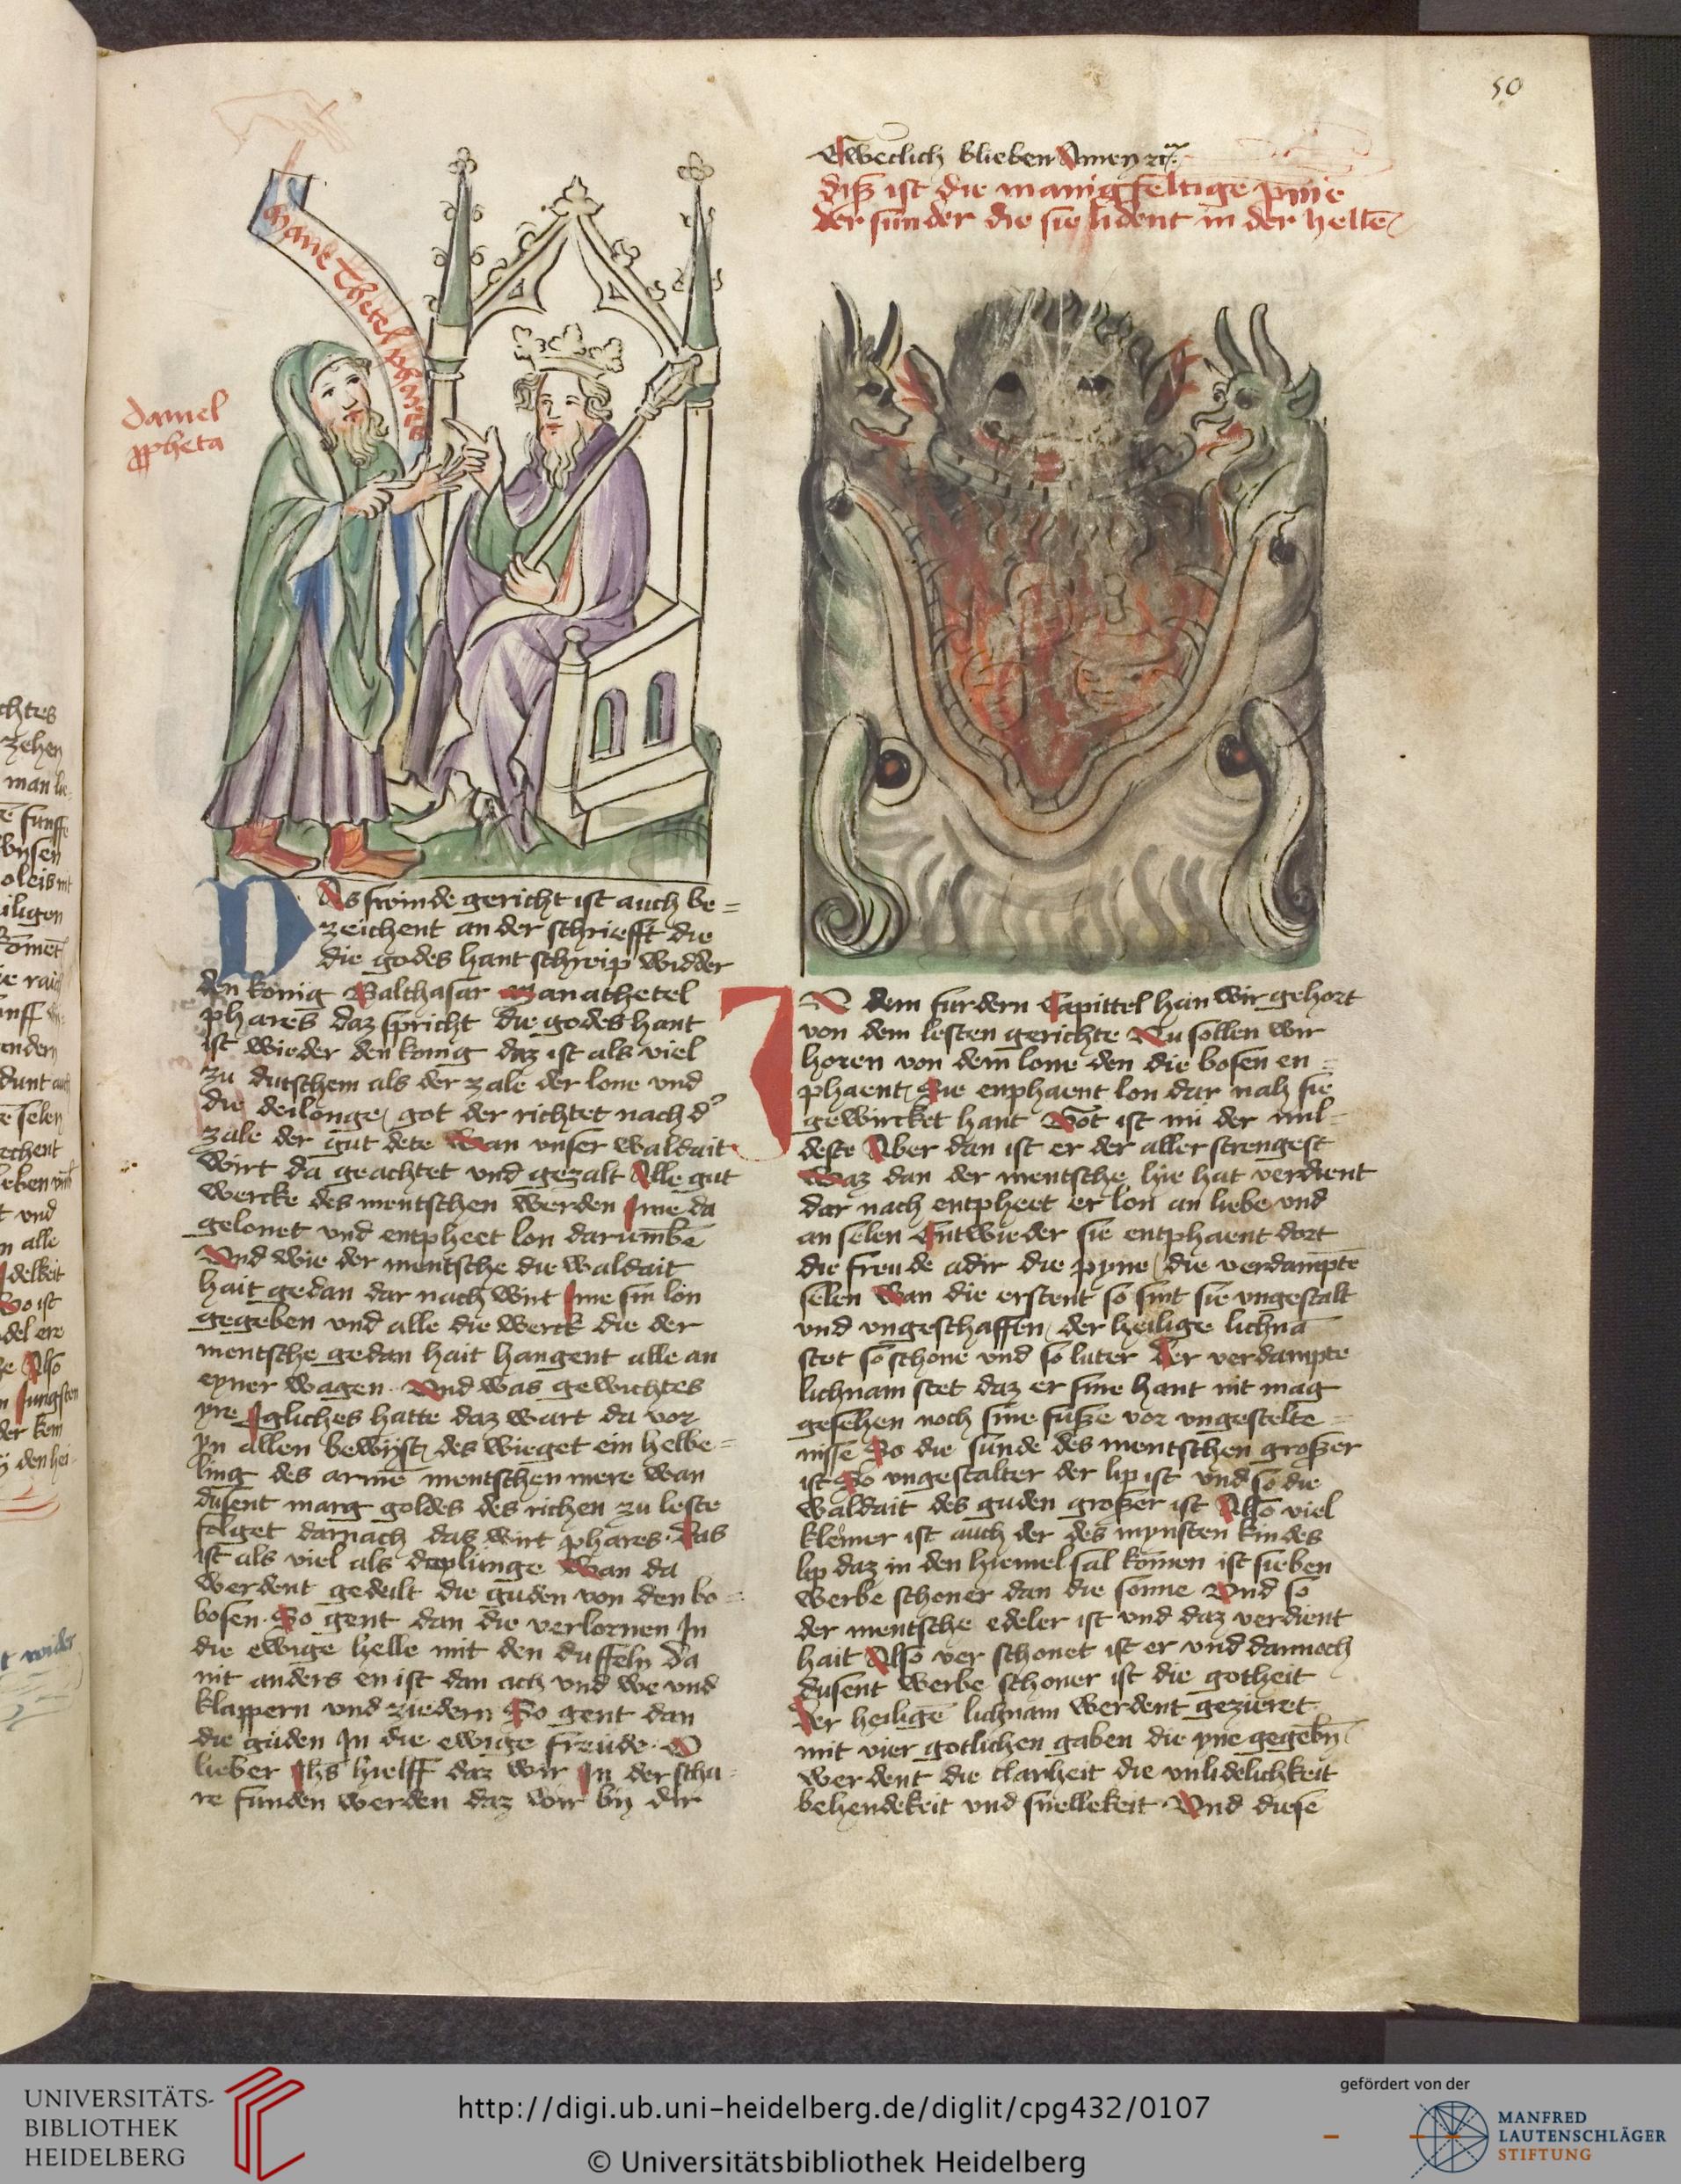 50
Mane Thetel phares
daniel
ppheta
DAs swinde gericht ist auch be=
zeichent an der schriefft die
die godes hant schreip widder
den konig Balthasar Manathetel
phares daz spricht die godes hant
ist wieder den konig daz ist als viel
zu dutschem als der zale der lone und
die deilonge got der richtet nach d'
zale der gut dete Wan unser waldait
wirt da geachtet und gezalt Alle gut
wercke des mentschen werden Ime da
gelonet und entpheet lon darumbe
Und wie der mentsche die waldait
hait gedan dar nach wirt Ime sin lon
gegeben und alle die werck die der
mentsche gedan hait hangent alle an
eyner wagen Und was gewichtes
yre Igliches hatte daz wart da vor
yn allen bewyst des wieget ein helbe=
ling des armē mentschen mere wan
dusent marg goldes des richen zu leste
folget darnach das wirt phares Das
ist als viel als deylunge Wan da
werdent gedeilt die guden von den bo=
bosen So gent dan die verlornen In
die ewige helle mit den duffeln Da
nit anders en ist dan ach und we und
klappern und ziedern So gent dan
die guden In die ewige freude O
lieber Ihs hielff daz wir In der scha=
re funden werden daz wir by dir
Eweclich blieben Amen
diß ist die manigfeltige pyne
der sunder die sie lident in der hellē
IN dem furdern Capittel han wir gehort
von dem lesten gerichte Nu sollen wir
horen von dem lone den die bosen en=
phaent Sie enphaent lon dar nah sie
gewircket hant Got ist nu der mil=
deste Aber dan ist er der aller strengest
Waz dan der mentsche hie hat verdient
dar nach entpheet er lon an liebe und
an selen Entwieder sie entphaent dort
die freude adir die pyne die verdampte
selen Wan die erstent so sint sie ungestalt
und ungeschaffen der heilige lichnā
stet so schone und so luter Der verdampte
lichnam stet daz er sine hant nit mag
gesehen noch sine fusze vor ungestelte=
nisse So die sunde des mentschen groszer
ist So ungestalter der lip ist und so die
waldait des guden groszer ist Also viel
kleiner ist auch der des mynsten kindes
lip daz in den hiemel sal komen ist sieben
werbe schoner dan die sonne Und so
der mentsche edeler ist und daz verdient
hait Also ver schonet ist er und dannoch
dusent werbe schoner ist die gotheit
Der heiligē lichnam werdent gezieret
mit vier gotlichen gaben die yne gegebn
werdent die clarheit die unlidelichkeit
behendekeit und snellekeit Und diese
UNIVERSITÄTS-
BIBLIOTHEK
HEIDELBERG
http://digi.ub.uni-heidelberg.de/diglit/cpg432/0107
© Universitätsbibliothek Heidelberg
gefördert von der
MANFRED
LAUTENSCHLÄGER
STIFTUNG